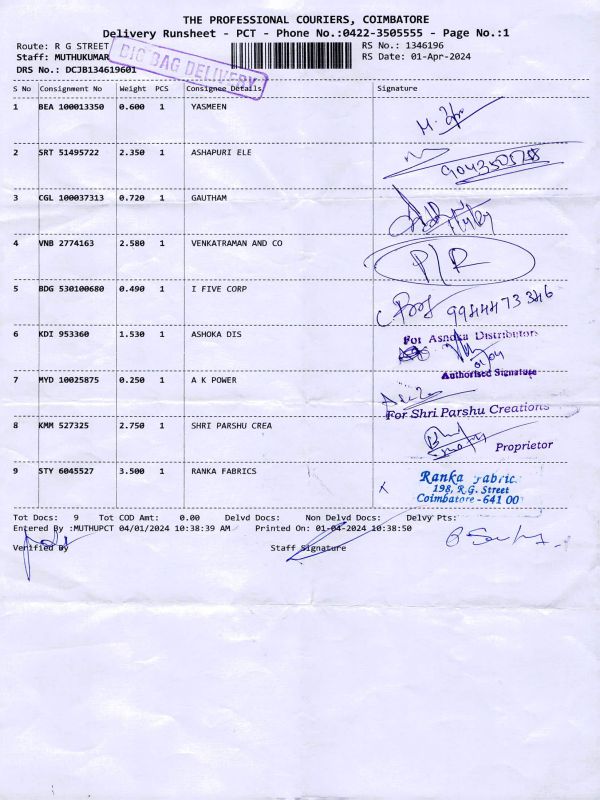 THE PROFESSIONAL COURIERS, COIMBATORE
Delivery Runsheet - PCT - Phone No.:0422-3505555 - Page No.:1
Route: R G STREET RS No.: 1346196
Staff: MUTHUKUMAR RS Date: 01-Apr-2024
DRS No.: DCJB134619601
BIG BAG DELIVERY
S No Consignment No Weight PCS Consignee Details Signature
1 BEA 100013350 0.600 1 YASMEEN
2 SRT 51495722 2.350 1 ASHAPURI ELE
3 CGL 100037313 0.720 1 GAUTHAM
4 VNB 2774163 2.580 1 VENKATRAMAN AND CO
P/R
5 BDG 530100680 0.490 1 I FIVE CORP
9944473346
6 KDI 953360 1.530 1 ASHOKA DIS
For Ashoka Distributors
Authorised Signature
7 MYD 10025875 0.250 1 A K POWER
For Shri Parshu Creations
8 KMM 527325 2.750 1 SHRI PARSHU CREA
Proprietor
9 STY 6045527 3.500 1 RANKA FABRICS
Ranka Fabric
198, R.G. Street
Coimbatore - 641 00
Tot Docs: 9 Tot COD Amt: 0.00 Delvd Docs: Non Delvd Docs: Delvy Pts:
Entered By :MUTHUPCT 04/01/2024 10:38:39 AM Printed On: 01-04-2024 10:38:50
Verified By Staff Signature